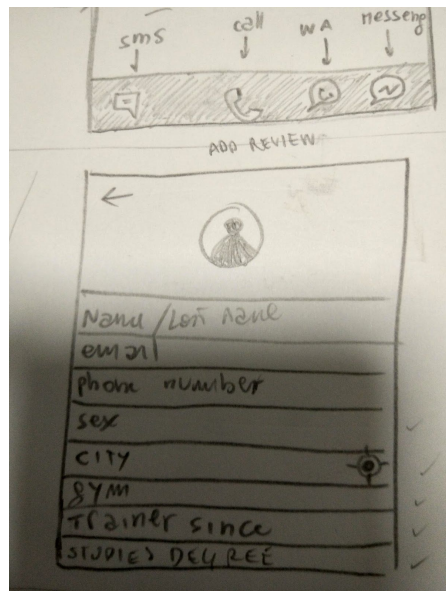 sms call WA messeng
ADD REVIEW
Name / Last name
email
phone number
sex
CITY
gym
Trainer since
STUDIES DEGREE